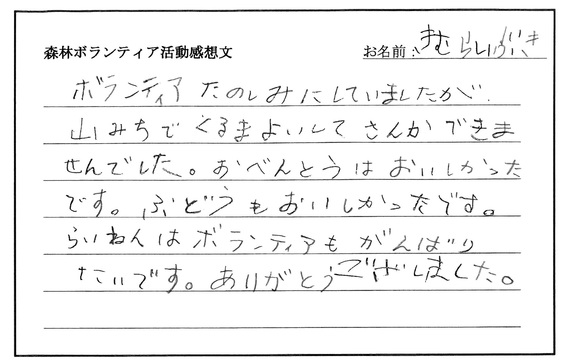 森林ボランティア活動感想文
お名前：きむらいぶき
ボランティア たのしみにしていましたが、
山みちでくるまよいして さんかできま
せんでした。おべんとうはおいしかった
です。ぶどうもおいしかったです。
らいねんはボランティアもがんばり
たいです。ありがとうございました。